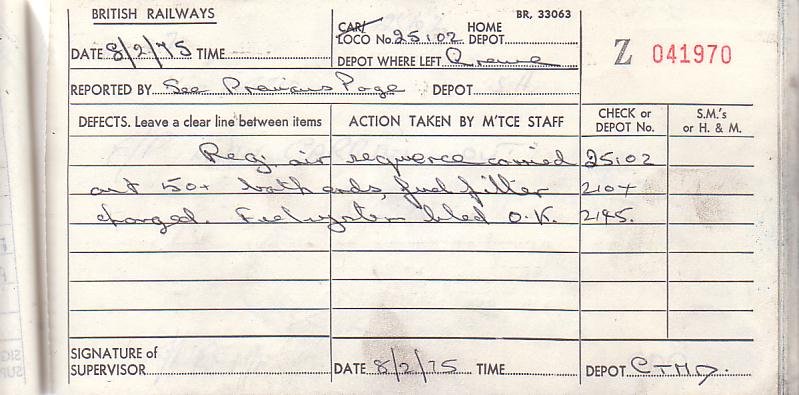 BRITISH RAILWAYS
BR. 33063
CAR/ LOCO No. 25102 HOME DEPOT
DATE 8/2/75 TIME
DEPOT WHERE LEFT Crewe
Z 041970
REPORTED BY See Previous Page DEPOT
DEFECTS. Leave a clear line between items
ACTION TAKEN BY M'TCE STAFF
CHECK or DEPOT No.
S.M.'s or H. & M.
Reg. air sequence carried 25102
out 50+ both ends, fuel filter
changed. Fuel system bled O.K. 2195.
SIGNATURE of SUPERVISOR
DATE 8/2/75 TIME
DEPOT CTMD.